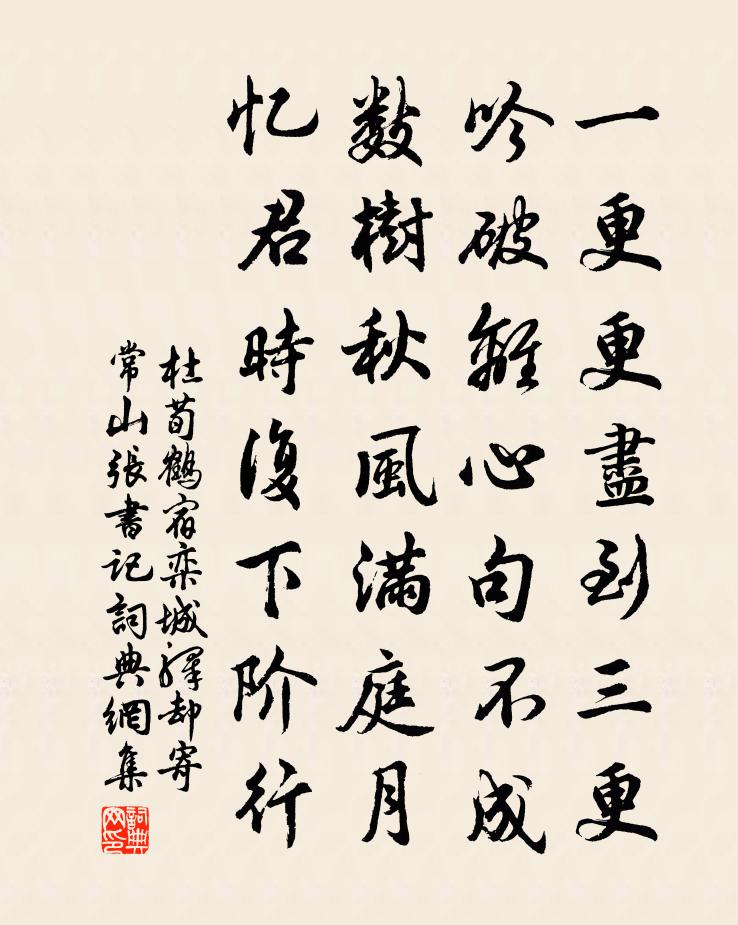 一更更盡到三更
吟破離心句不成
数樹秋風滿庭月
忆君時復下阶行
杜荀鶴宿栾城驛却寄
常山張書記詞典網集
詞典
网印